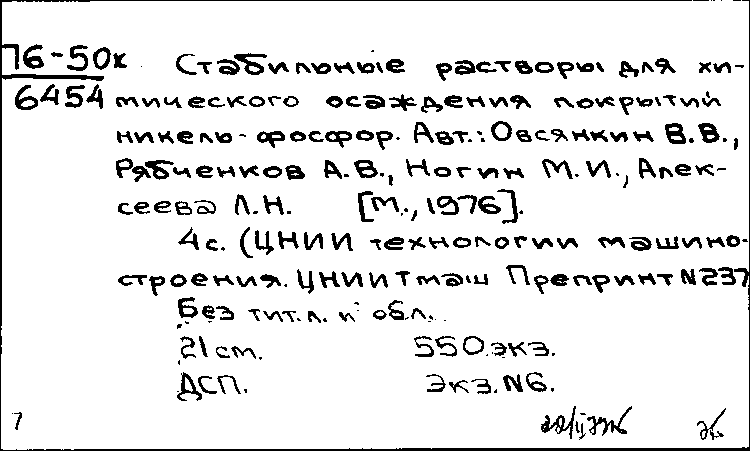 76-50к Стабильные растворы для хи-
6454 мического осаждения покрытий
никель-фосфор. Авт.: Овсянкин В.В.,
Рябченков А.В., Ногин М.И., Алек-
сеева Л.Н. [М., 1976].
4с. (ЦНИИ технологии машино-
строения. ЦНИИТмаш Препринт N237
Без тит.л. и обл.
21см. 550.экз.
ДСП. Экз.N6.
7